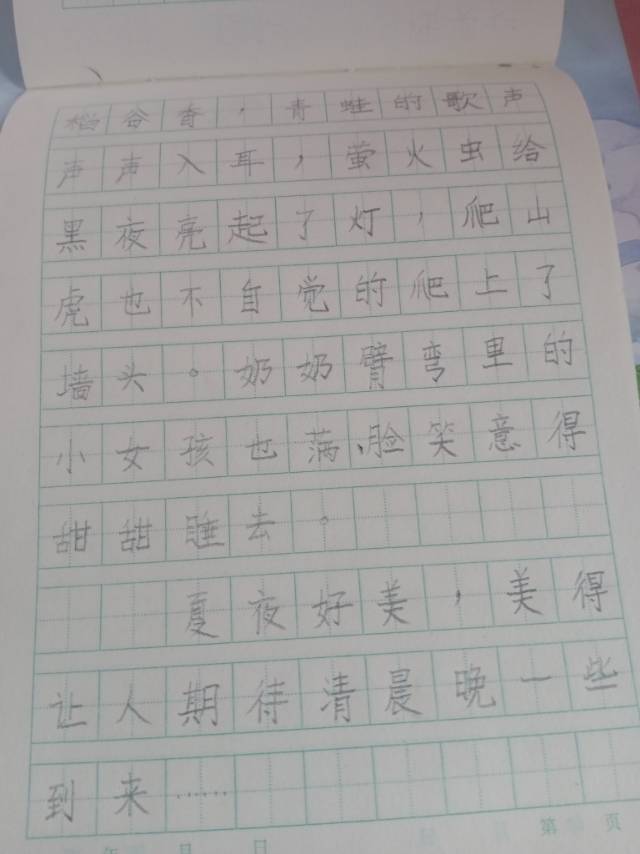 稻谷香，青蛙的歌声
声声入耳，萤火虫给
黑夜亮起了灯，爬山
虎也不自觉的爬上了
墙头。奶奶臂弯里的
小女孩也满脸笑意得
甜甜睡去。
夏夜好美，美得
让人期待清晨晚一些
到来……
年 月 日 第 页